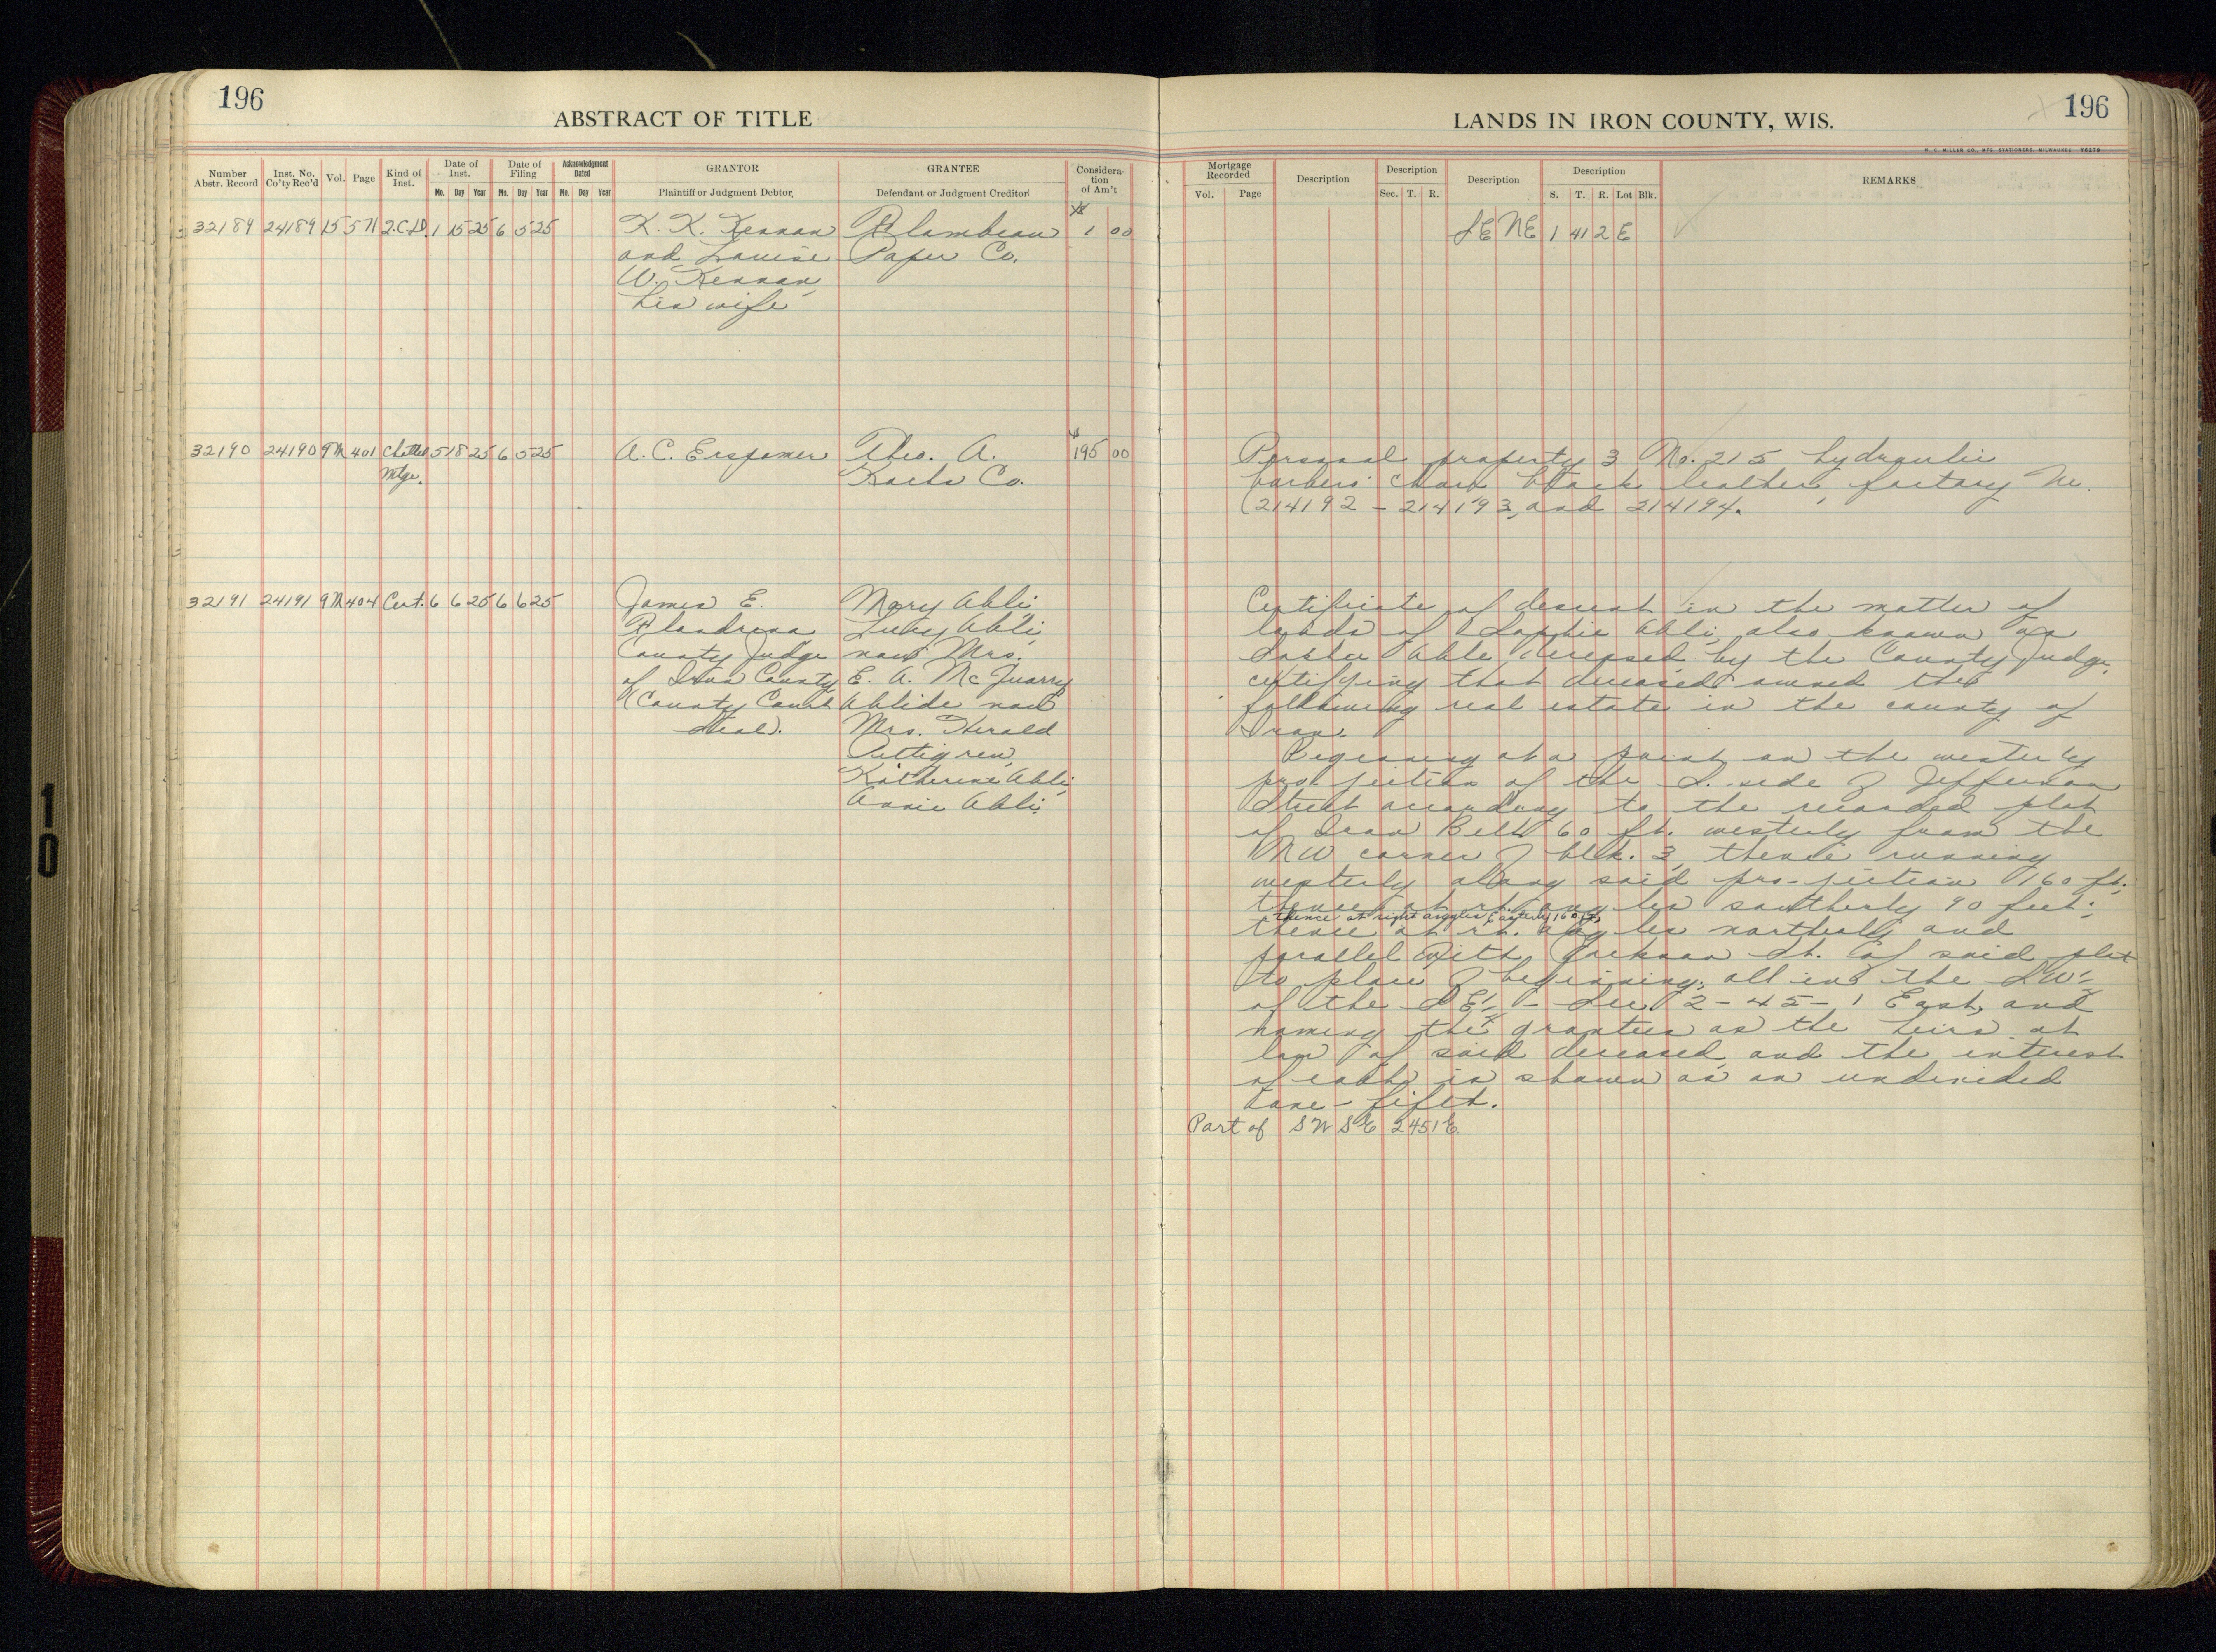 196
ABSTRACT OF TITLE
Number Abstr. Record
Inst. No. Co'ty Rec'd
Vol.
Page
Kind of Inst.
Date of Inst.
Mo. Day Year
Date of Filing
Mo. Day Year
Acknowledgment Dated
Mo. Day Year
GRANTOR
Plaintiff or Judgment Debtor
GRANTEE
Defendant or Judgment Creditor
Considera-
tion
of Am't
32189 24189 15 571 Q.C.D. 1 15 25 6 5 25 K. K. Kennan Flambeau 1 00
and Louise Paper Co.
W. Kennan,
his wife
32190 24190 9M 401 Chattel 5 18 25 6 5 25 A. C. Erspamer Theo. A. 195 00
Mtge. Kochs Co.
32191 24191 9M 404 Cert. 6 6 25 6 6 25 James E. Mary Abli,
Flandrena Lucy Abli,
County Judge now Mrs.
of Iron County E. A. McQuarry
(County Court Ablide now
Seal). Mrs. Herald
Pettigrew,
Katherine Abli,
Annie Abli.
196
LANDS IN IRON COUNTY, WIS.
H. C. MILLER CO., MFG. STATIONERS, MILWAUKEE
Mortgage Recorded
Vol. Page
Description
Description
Sec. T. R.
Description
Description
S. T. R. Lot Blk.
REMARKS
SE NE 1 41 2 E
Personal property 3 No. 215 hydraulic
barbers' chairs black leather, factory No.
(214192 - 214193, and 214194.
Certificate of descent in the matter of
lands of Sophie Abli, also known as
Able, deceased, by the County Judge,
certifying that deceased owned the
following real estate in the county of
Iron.
Beginning at a point on the westerly
projection of the S. side of Jefferson
Street according to the recorded plat
of Iron Belt 60 ft. westerly from the
NW corner of blk. 3, thence running
westerly along said pro-jection 160 ft.
thence at rt. angles southerly 90 feet;
thence at right angles Easterly 160 ft;
thence at rt. angles northerly and
parallel with Jackson St. of said plat
to place of beginning, all in the SW¼
of the SE¼ - Sec. 2-45-1 East, and
naming the grantees as the heirs at
law of said deceased and the interest
of each is shown as an undivided
one-fifth.
Part of SW SE 2 45 1 E.